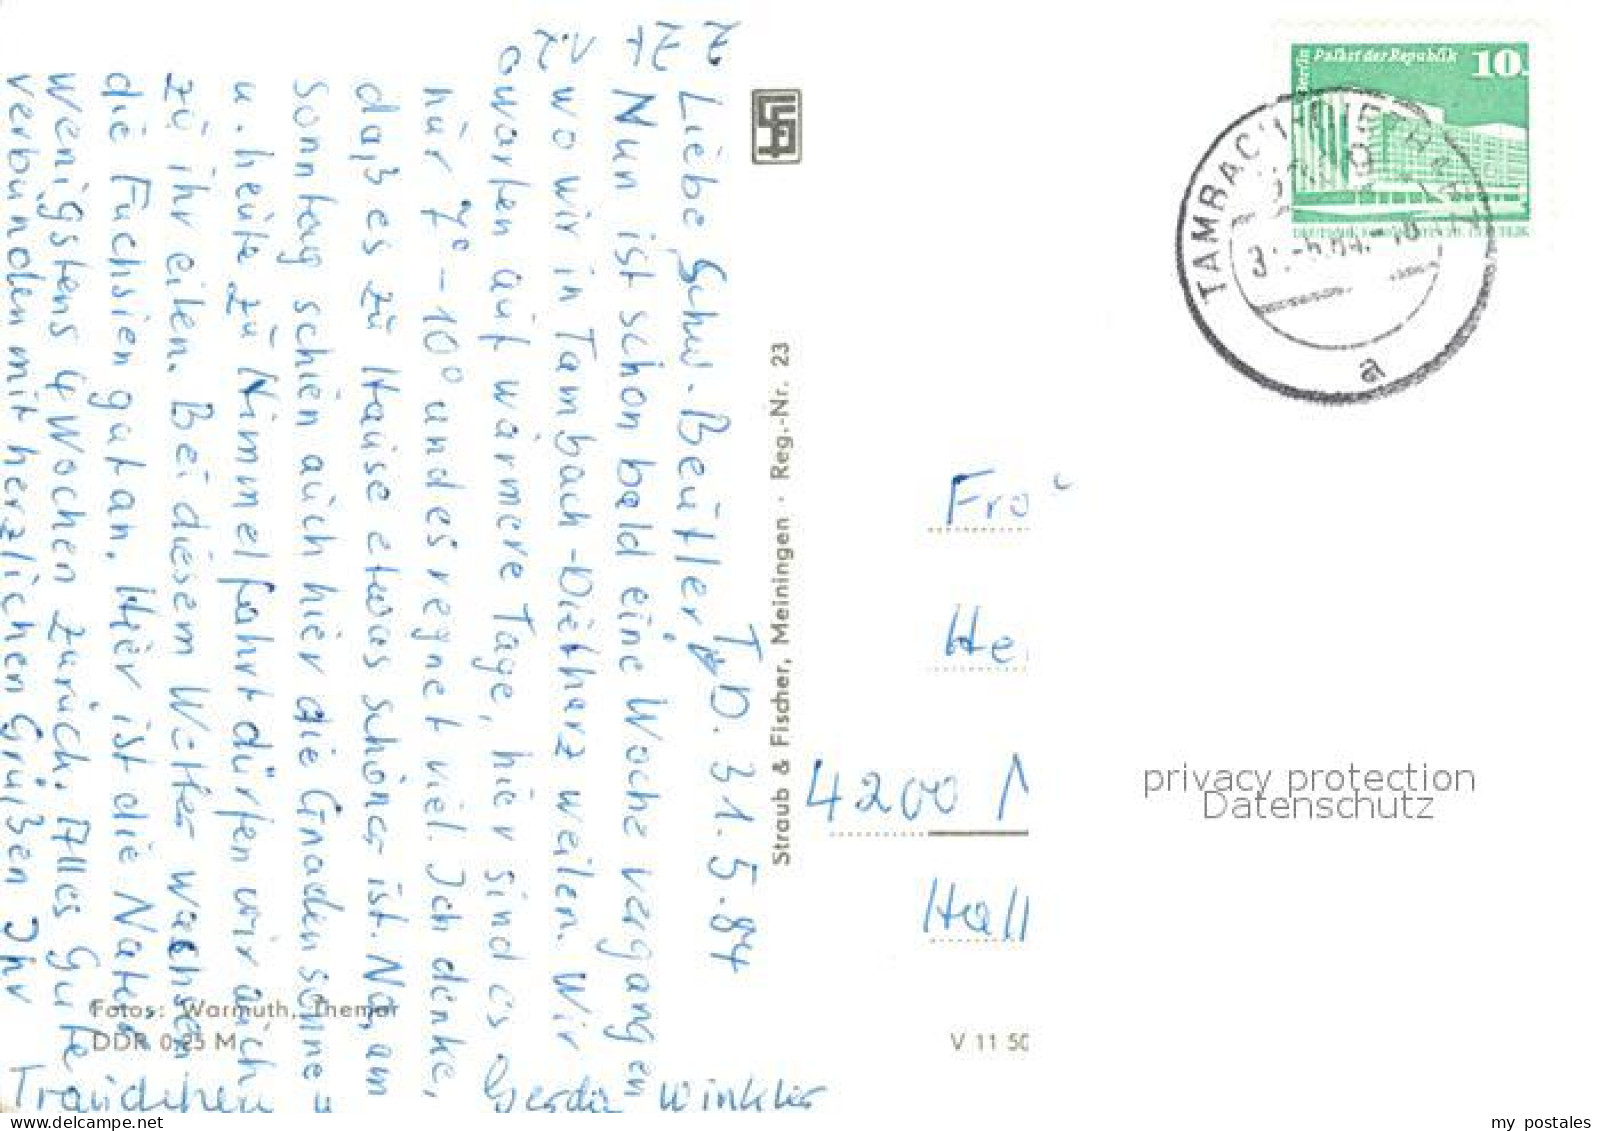 T.D. 31.5.84
Liebe Schw. Beutler,
Nun ist schon bald eine Woche vergangen
wo wir in Tambach-Dietharz weilen. Wir
warten auf wärmere Tage, hier sind es
nur 7°-10° und es regnet viel. Ich denke,
daß es zu Hause etwas schöner ist. Na, am
Sonntag schien auch hier die Gnadensonne
u. heute zu Himmelfahrt dürfen wir auch
zu ihr eilen. Bei diesem Wetter wachsen
die Fuchsien gut an. Hier ist die Natur
wenigstens 4 Wochen zurück. Alles Gute
verbunden mit herzlichen Grüßen Ihr
Traudchen u Gerda Winkler
Straub & Fischer, Meiningen · Reg.-Nr. 23
Fotos: Warmuth, Themar
DDR 0,25 M
V 11 50
Berlin Palast der Republik 10
TAMBACH-DIETHARZ
a
He
4200
Hall
privacy protection
Datenschutz
my postales